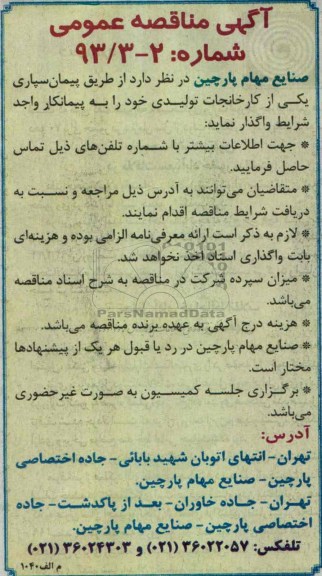 آگهی مناقصه عمومی
شماره: ۲-۹۳/۳
صنایع مهام پارچین در نظر دارد از طریق پیمان‌سپاری
یکی از کارخانجات تولیدی خود را به پیمانکار واجد
شرایط واگذار نماید:
* جهت اطلاعات بیشتر با شماره تلفن‌های ذیل تماس
حاصل فرمایید.
* متقاضیان می‌توانند به آدرس ذیل مراجعه و نسبت به
دریافت شرایط مناقصه اقدام نمایند.
* لازم به ذکر است ارائه معرفی‌نامه الزامی بوده و هزینه‌ای
بابت واگذاری اسناد اخذ نخواهد شد.
* میزان سپرده شرکت در مناقصه به شرح اسناد مناقصه
می‌باشد.
ParsNamadData
* هزینه درج آگهی به عهده برنده مناقصه می‌باشد.
* صنایع مهام پارچین در رد یا قبول هر یک از پیشنهادها
مختار است.
* برگزاری جلسه کمیسیون به صورت غیرحضوری
می‌باشد.
آدرس:
تهران- انتهای اتوبان شهید بابائی- جاده اختصاصی
پارچین- صنایع مهام پارچین.
تهران- جاده خاوران- بعد از پاکدشت- جاده
اختصاصی پارچین- صنایع مهام پارچین.
تلفکس: ۳۶۰۲۲۰۵۷ (۰۲۱) و ۳۶۰۲۴۳۰۳ (۰۲۱)
م الف۱۰۴۰